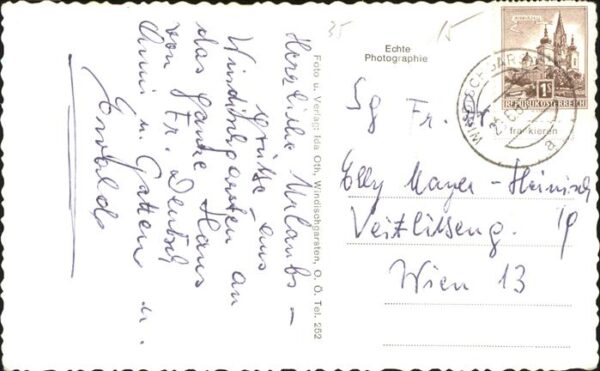 Herzliche Urlaubs-
Grüsse aus
Windischgarsten an
das ganze Haus
von Fr. Deutsch
Anni u. Gatten u.
Ewalds
Foto u. Verlag: Ida Oth, Windischgarsten, O. Ö. Tel. 252
35
15
Echte
Photographie
1S
REPUBLIK ÖSTERREICH
WINDISCHGAR
a
frankieren
Sg Fr.
Elly Mayer-Heinisch
Veitlisseng.
Wien 13